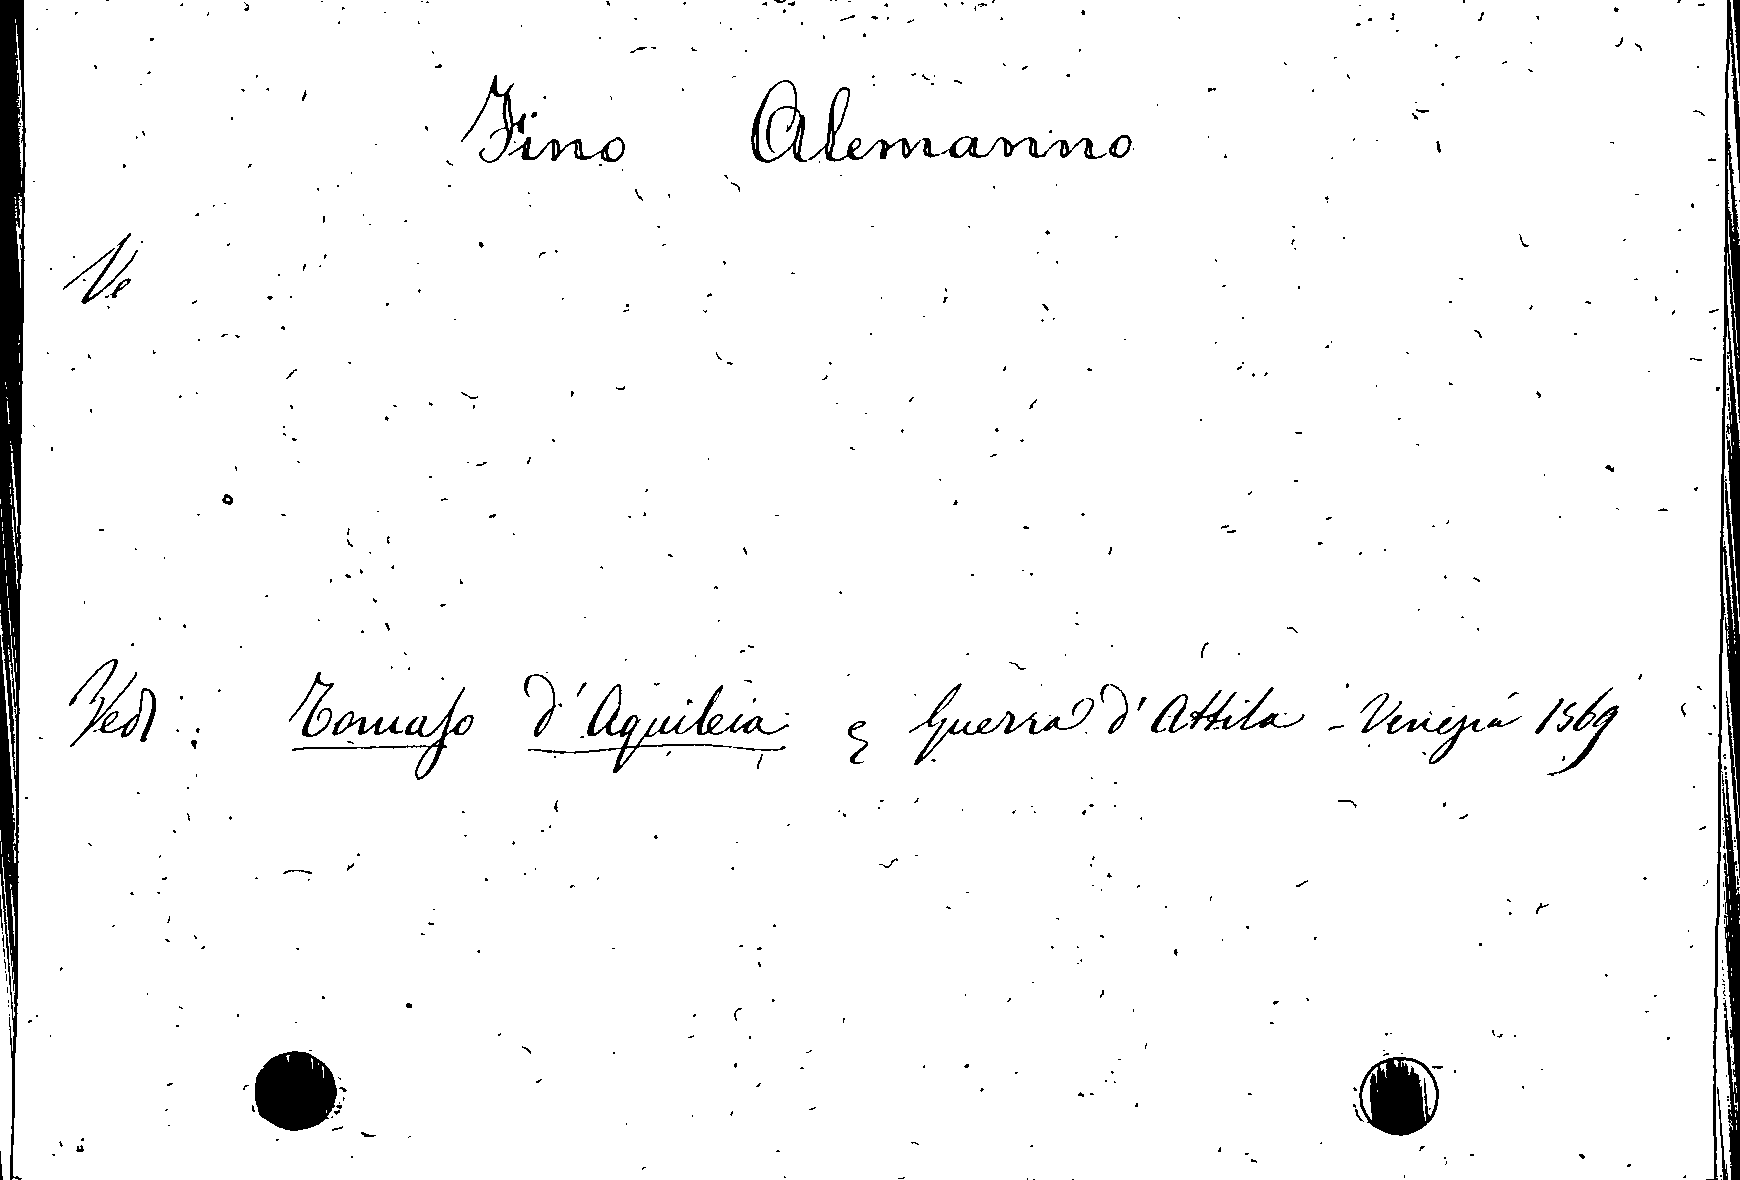 Fino Alemanno
Ve
Vedi: Tomaso d'Aquileia e Guerra d'Attila - Venezia 1569